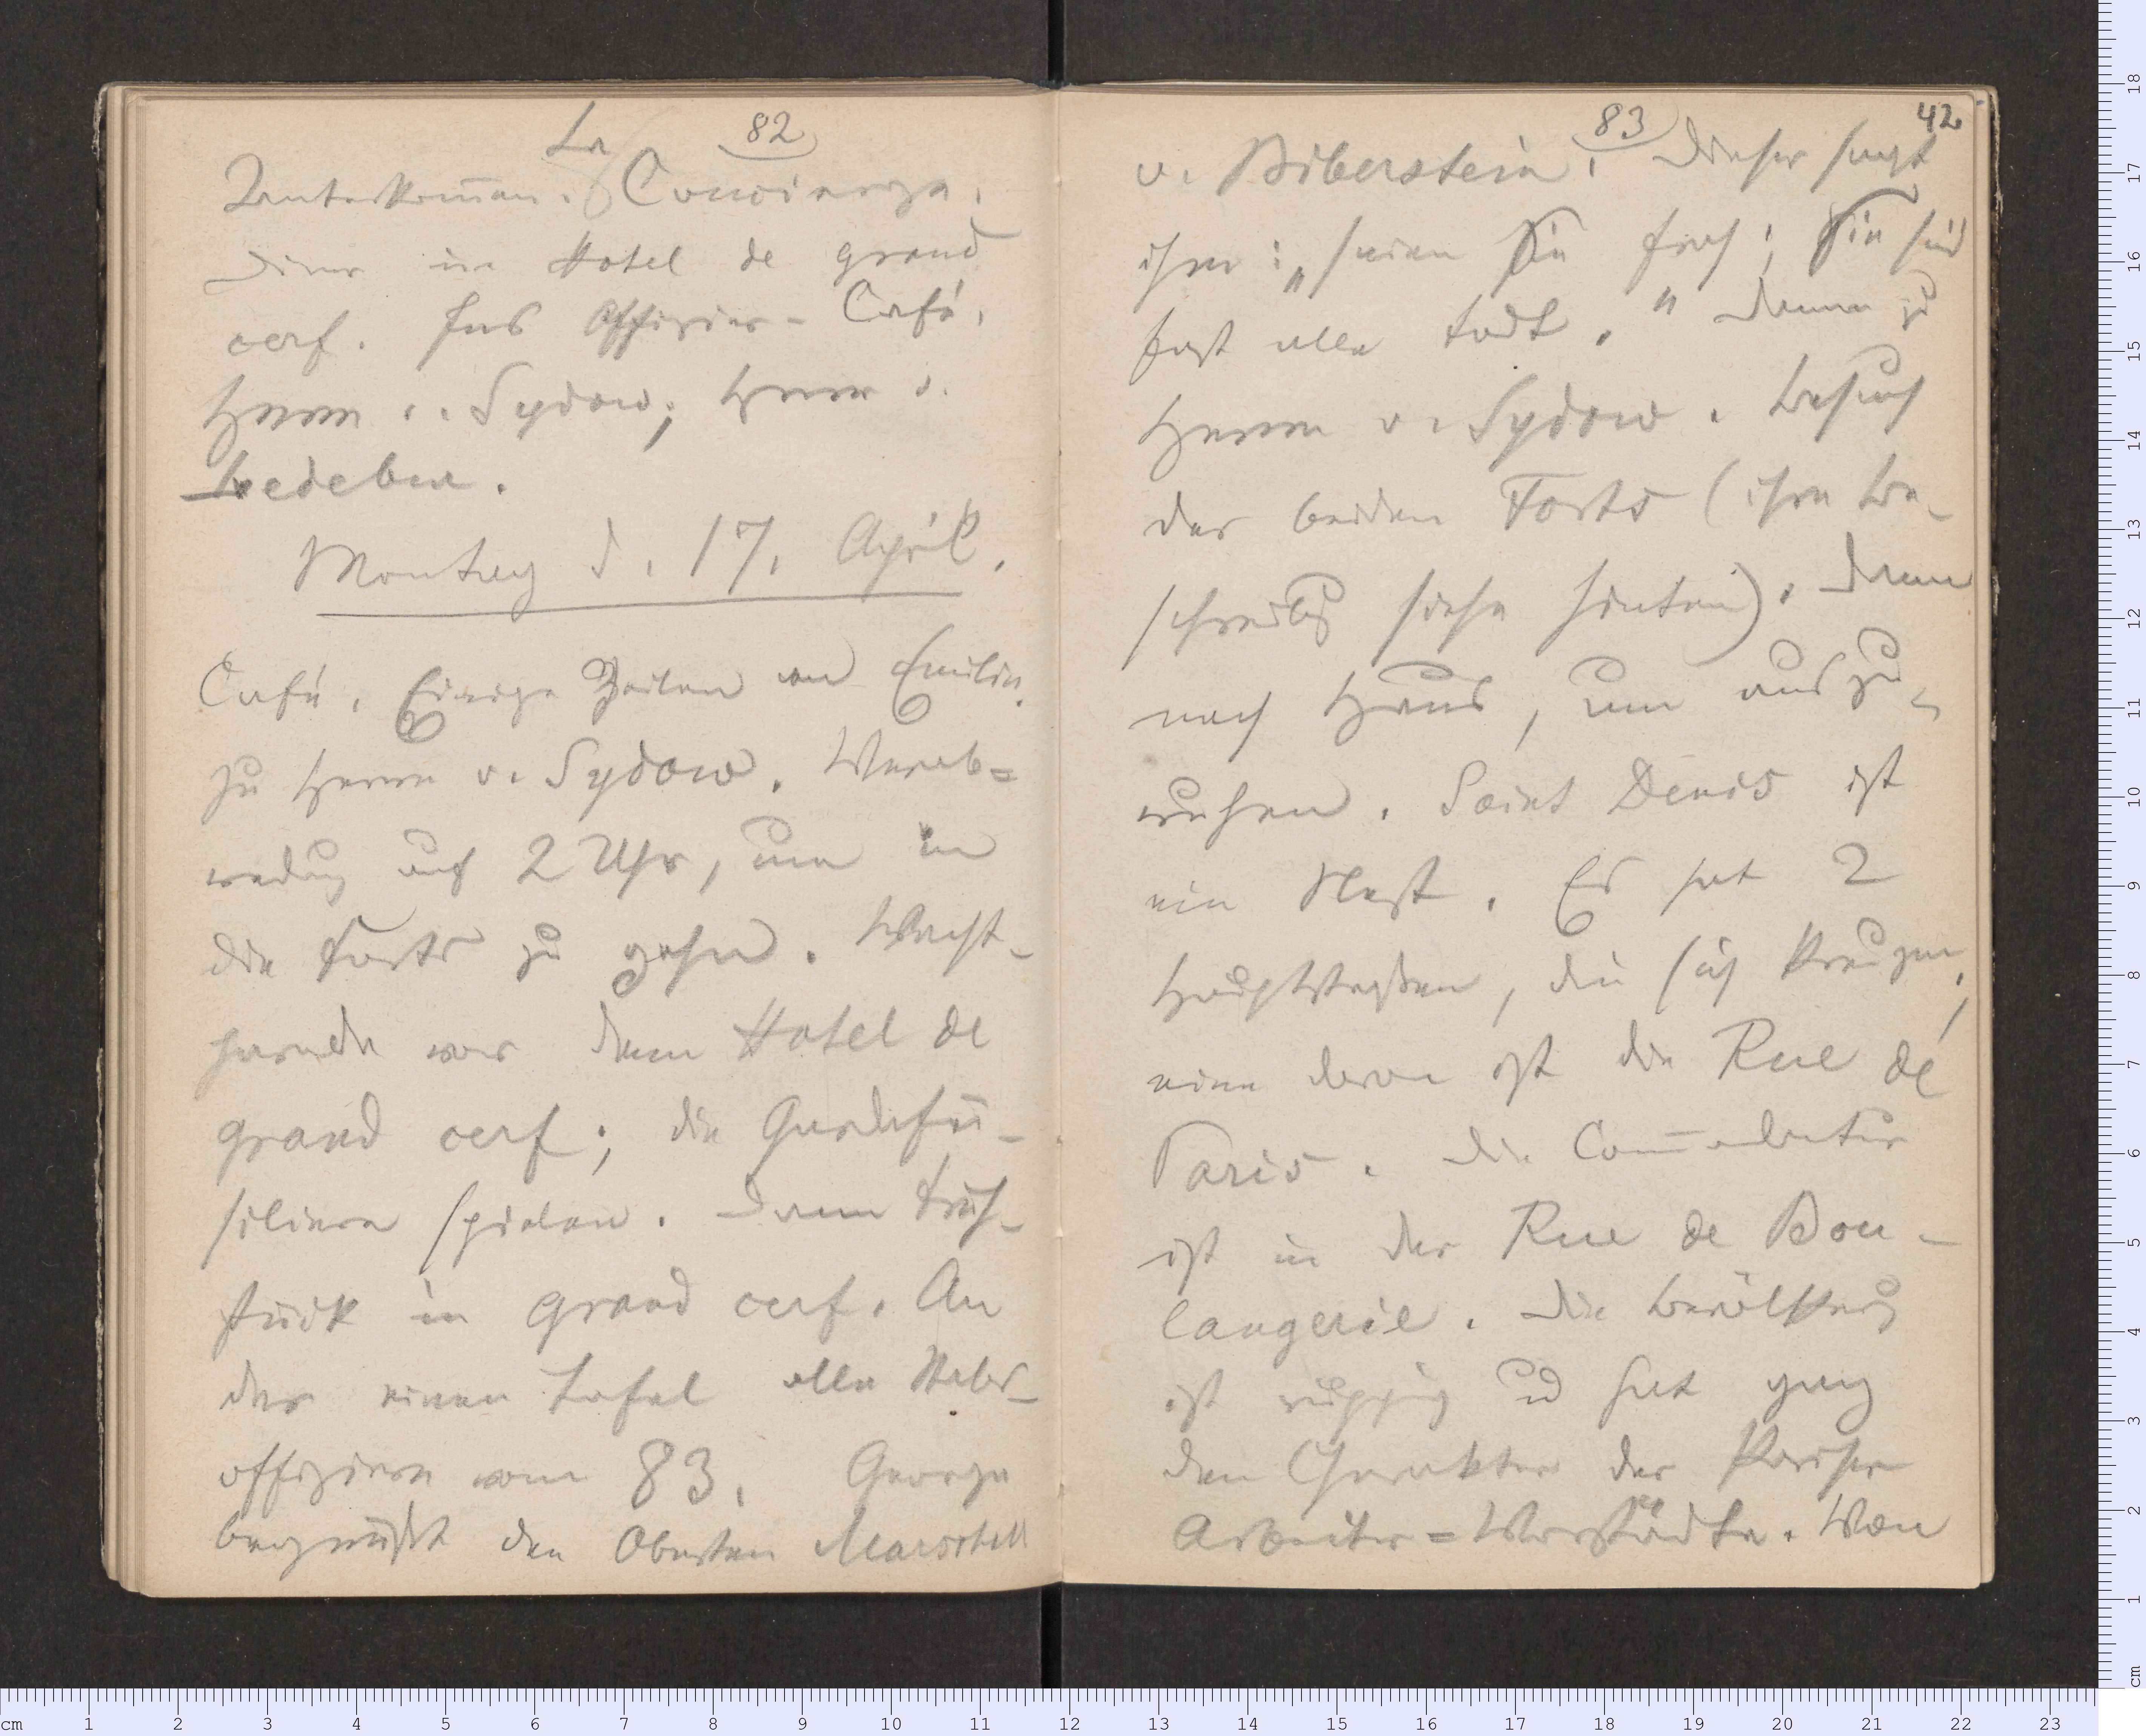 82
La
Unterkom̅en. Concierge.
Diner im Hotel de grand
cerf. Ins Offizier-Café.
Herrn v. Sydow; Herr v.
Ledebur.
Montag d. 17. April.
Café. Einige Zeilen an Emilie.
Zu Herrn v. Sydow. Verab=
redung auf 2 Uhr, um in
die Forts zu gehn. Wacht-
parade vor dem Hotel de
grand cerf; die Gardefü-
siliere spielen. Dann Früh-
stück in grand cerf. An
der einen Tafel alle Stabs-
offiziere vom 83. George
begrüßt den Obersten Marschall
83
42
v. Biberstein. Dieser sagt
ihm: „seien Sie froh; Sie sind
fast alle todt." Dann zu
Herrn v. Sydow. Besuch
der beiden Forts (ihre Be-
schreibg siehe hinten). Dann
nach Haus, um auszu-
ruhen. Saint Denis ist
ein Nest. Es hat 2
Hauptstraßen, die sich kreuzen;
eine davon ist die Rue de
Paris. Die Com̅andantur
ist in der Rue de Bou-
langerie. Die Bevölkerung
ist ruppig und hat ganz
den Charakter der Pariser
Arbeiter=Vorstädte. Von